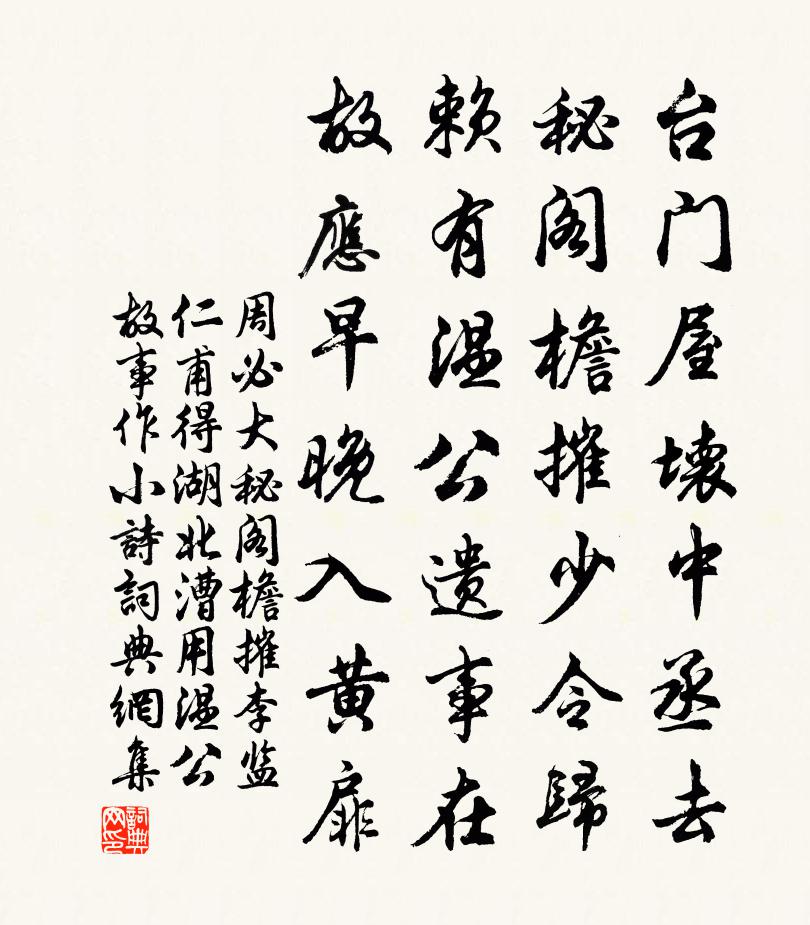 台门屋壞中丞去
秘阁檐摧少令歸
赖有温公遗事在
故應早晚入黄扉
周必大秘阁檐摧李监
仁甫得湖北漕用温公
故事作小詩詞典網集
詞典网印